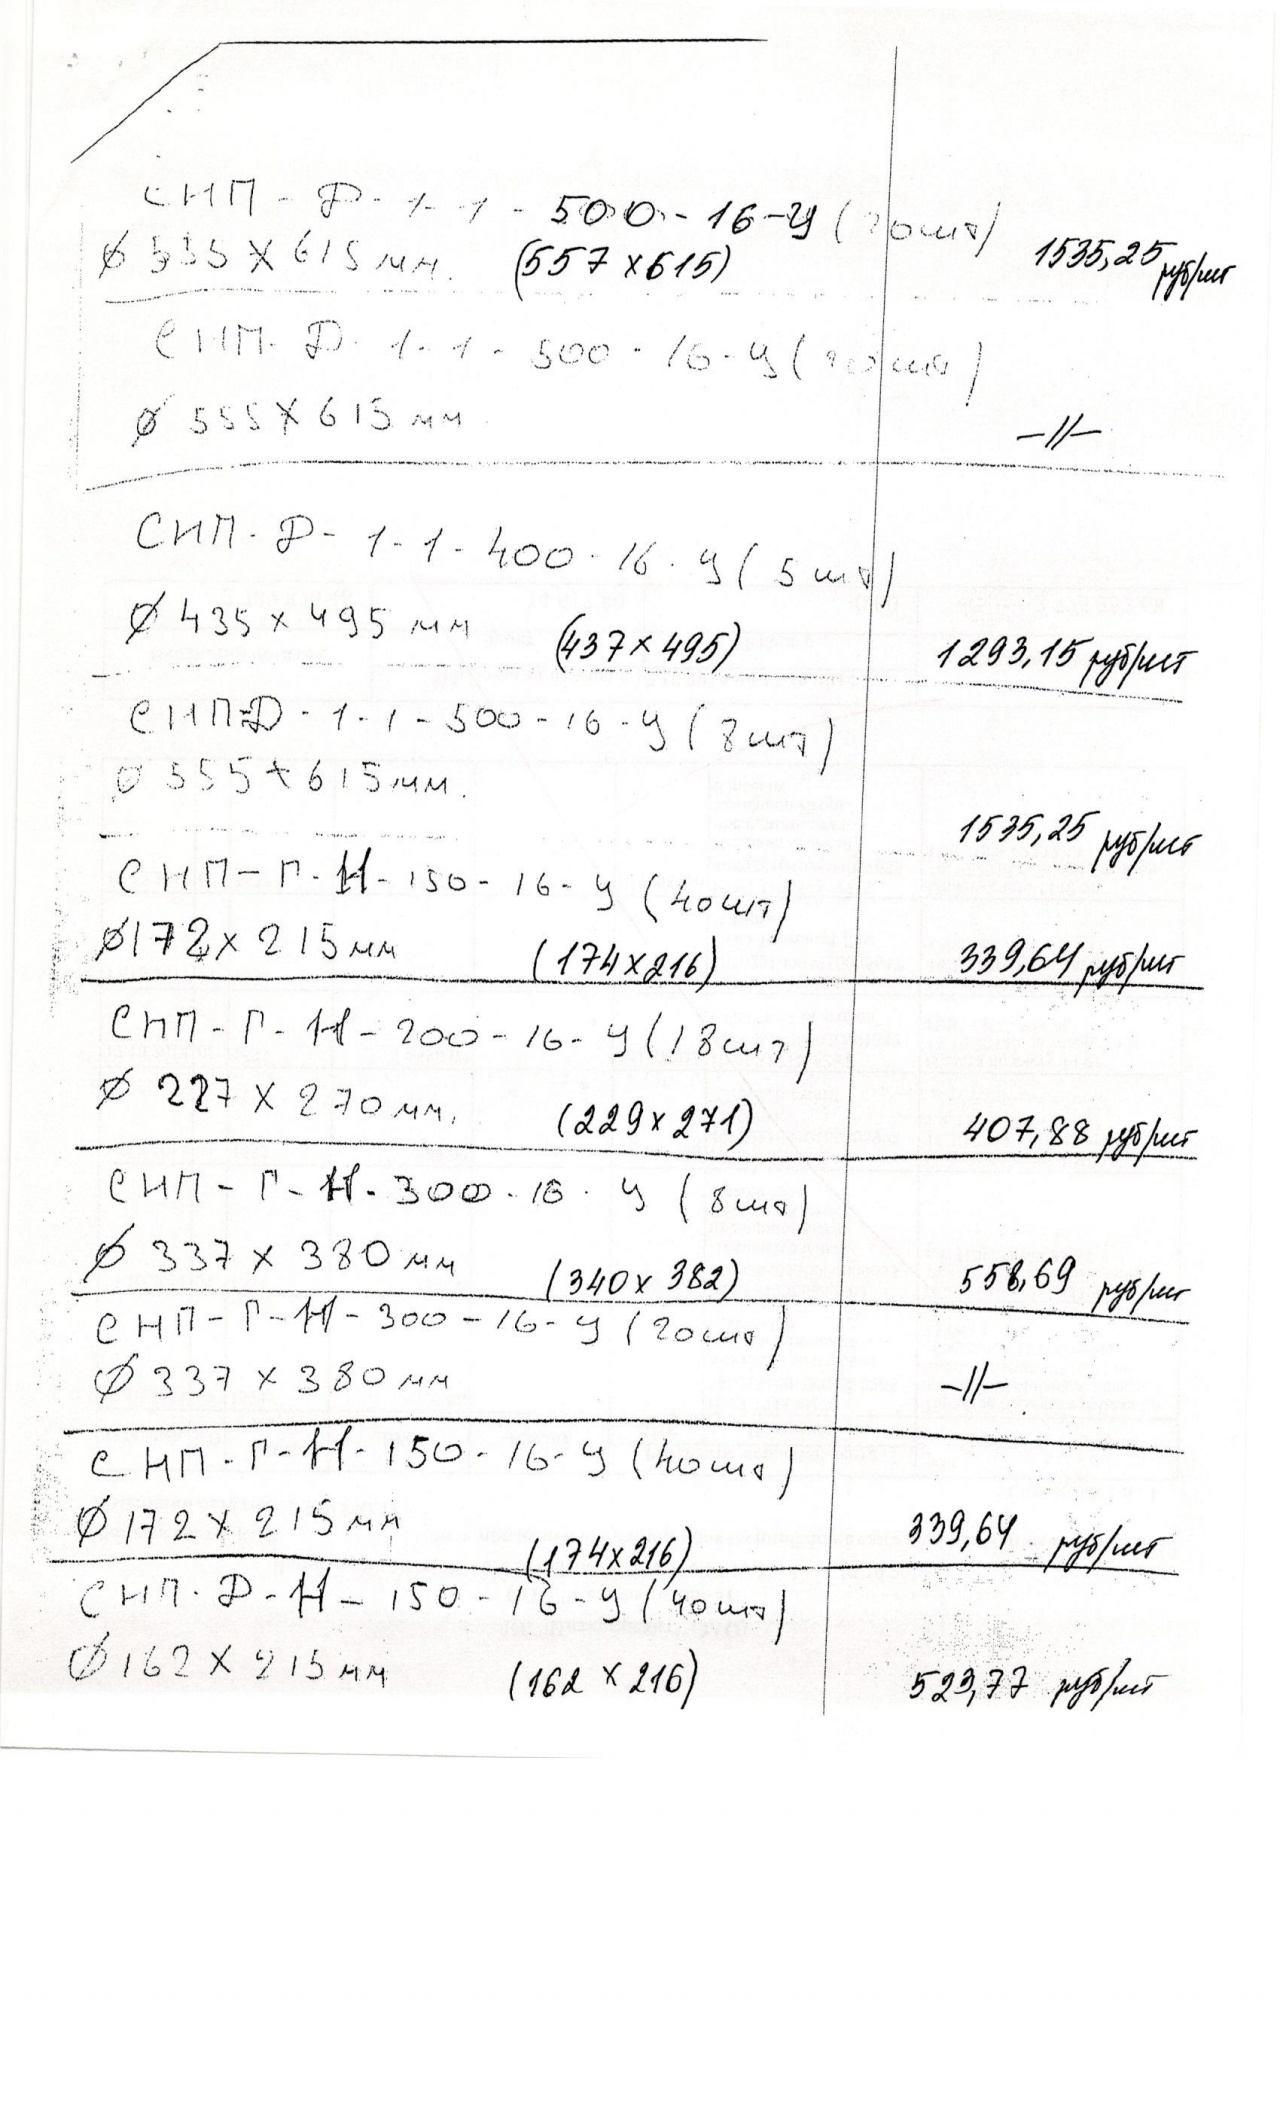 СНП-Д-1-1-500-16-У (20шт)
Ø 555 x 615 мм. (557 x 615) 1535,25 руб/шт
СНП-Д-1-1-500-16-У (20шт)
Ø 555 x 615 мм -//-
СНП-Д-1-1-400-16-У (5 шт)
Ø 435 x 495 мм (437 x 495) 1293,15 руб/шт
СНП-Д-1-1-500-16-У (8шт)
Ø 555 x 615мм. 1535,25 руб/шт
СНП-Г-Н-150-16-У (40шт)
Ø172 x 215мм (174x216) 339,64 руб/шт
СНП-Г-Н-200-16-У (18шт)
Ø 227 x 270мм. (229 x 271) 407,88 руб/шт
СНП-Г-Н-300-16-У (8шт)
Ø 337 x 380мм (340 x 382) 558,69 руб/шт
СНП-Г-Н-300-16-У (20шт)
Ø 337 x 380мм -//-
СНП-Г-Н-150-16-У (40шт)
Ø 172 x 215мм (174x216) 339,64 руб/шт
СНП-Д-Н-150-16-У (40шт)
Ø 162 x 215мм (162 x 216) 523,77 руб/шт